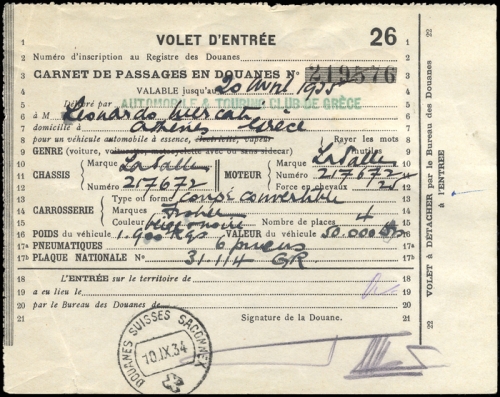 VOLET D'ENTRÉE 26
1 1
2 Numéro d'inscription au Registre des Douanes 2
3 CARNET DE PASSAGES EN DOUANES N° 219576 3
4 VALABLE jusqu'au 20 Avril 1935 4
5 Délivré par AUTOMOBILE & TOURING CLUB DE GRÈCE 5
6 à M Leonardo 6
7 domicilié à Athènes Grèce 7
8 pour un véhicule automobile à essence, électricité, vapeur Rayer les mots 8
9 GENRE (voiture, voiturette, motocyclette avec ou sans sidecar) inutiles 9
10 Marque LaSalle Marque LaSalle 10
11 CHASSIS MOTEUR 11
12 Numéro 217672 Numéro 217672
Force en chevaux 12
13 Type ou forme coupé convertible 13
14 CARROSSERIE Marque Fisher 14
15 Couleurs noire Nombre de places 4 15
16 POIDS du véhicule 1.900 Kgs VALEUR du véhicule 50.000 16
17 PNEUMATIQUES 6 pneus 17
17a PLAQUE NATIONALE N° 31114 GR.
18 L'ENTRÉE sur le territoire de 18
19 a eu lieu le 19
20 par le Bureau des Douanes de 20
21 Signature de la Douane. 21
DOUANES SUISSES SACONNEX
10.IX.34
22 VOLET A DÉTACHER par le Bureau des Douanes 22
à l'ENTRÉE